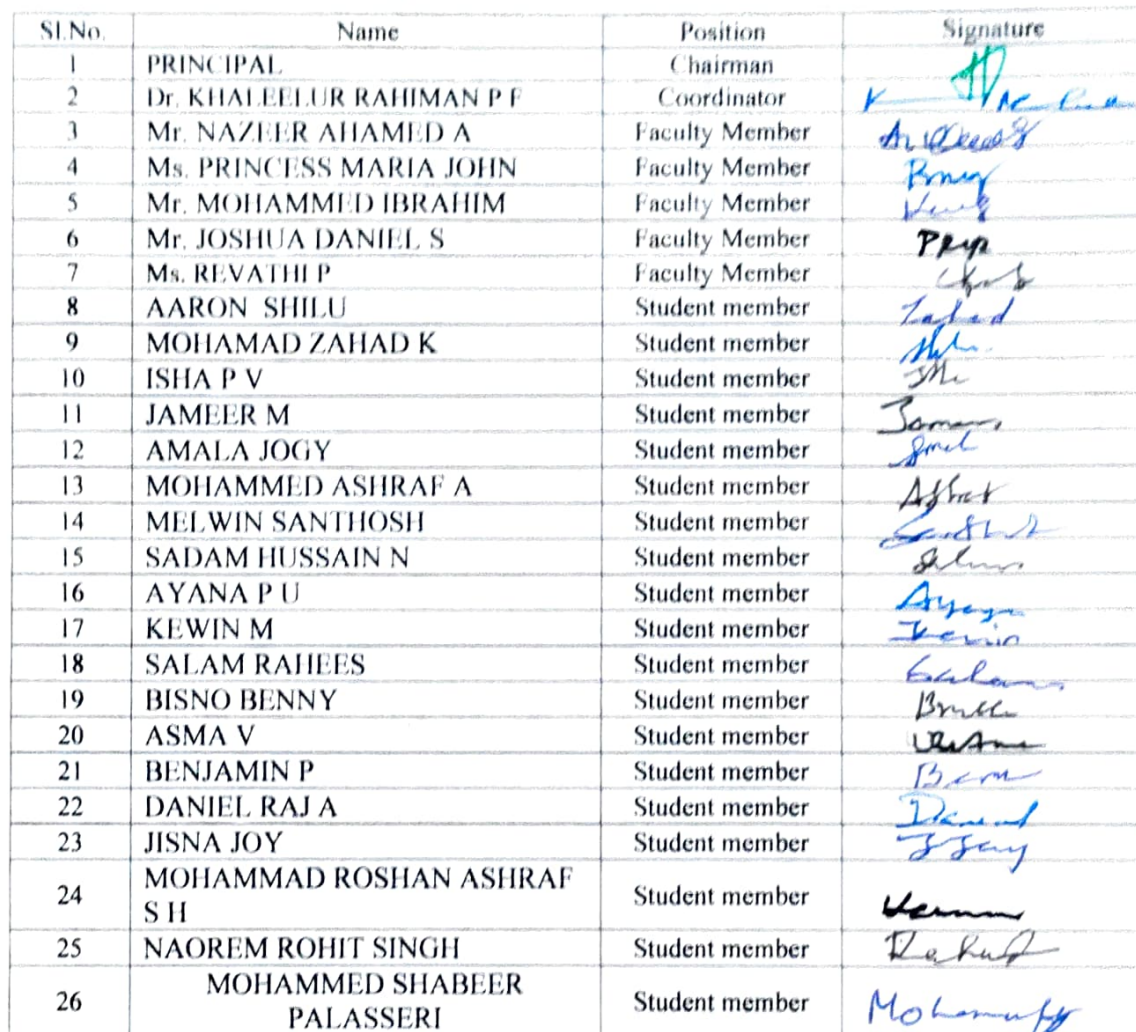 Sl.No. Name Position Signature
1 PRINCIPAL Chairman
2 Dr. KHALEELUR RAHIMAN P F Coordinator
3 Mr. NAZEER AHAMED A Faculty Member
4 Ms. PRINCESS MARIA JOHN Faculty Member
5 Mr. MOHAMMED IBRAHIM Faculty Member
6 Mr. JOSHUA DANIEL S Faculty Member
7 Ms. REVATHI P Faculty Member
8 AARON SHILU Student member Zahad
9 MOHAMAD ZAHAD K Student member
10 ISHA P V Student member
11 JAMEER M Student member
12 AMALA JOGY Student member
13 MOHAMMED ASHRAF A Student member
14 MELWIN SANTHOSH Student member
15 SADAM HUSSAIN N Student member
16 AYANA P U Student member
17 KEWIN M Student member
18 SALAM RAHEES Student member
19 BISNO BENNY Student member
20 ASMA V Student member
21 BENJAMIN P Student member
22 DANIEL RAJ A Student member
23 JISNA JOY Student member
24 MOHAMMAD ROSHAN ASHRAF Student member
S H
25 NAOREM ROHIT SINGH Student member
26 MOHAMMED SHABEER Student member
PALASSERI